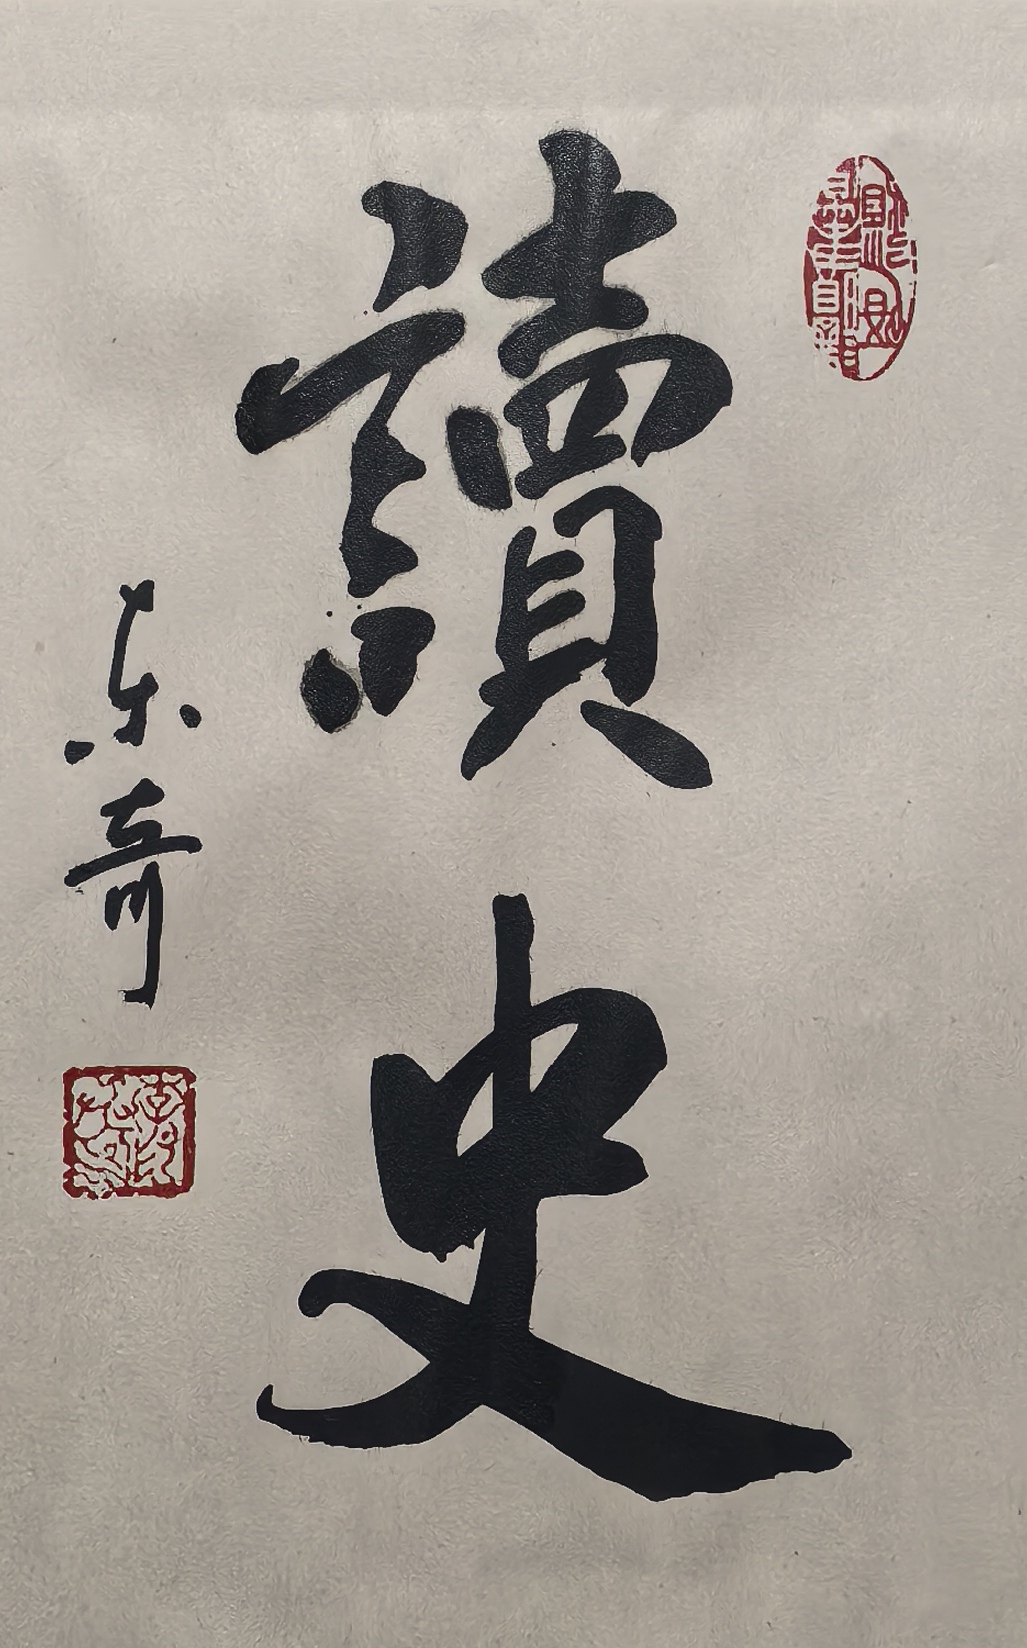 讀史
东奇